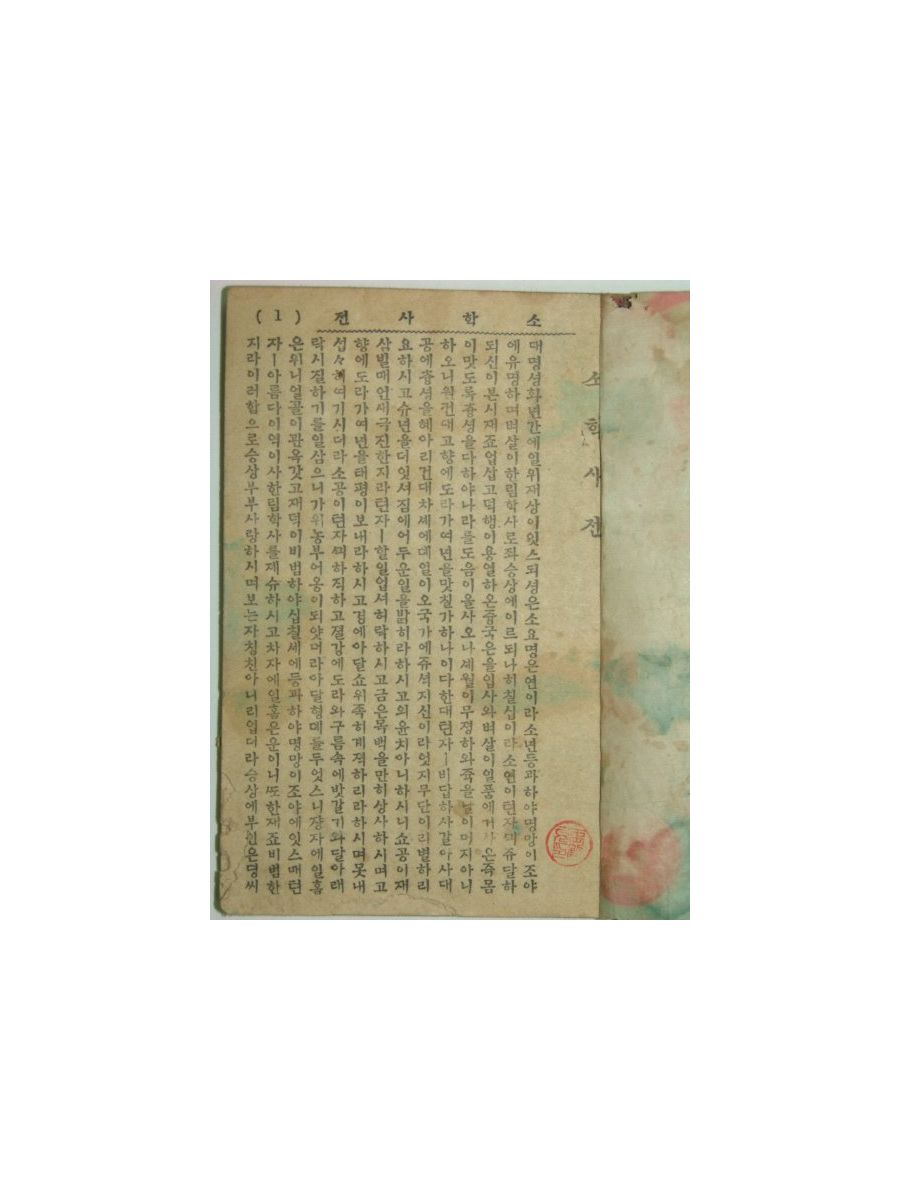 소학사전
소학사전 (1)
대명성화년간에일위재상이잇스되셩은소요명은연이라소년등과하야명망이조야
에유명하며벼살이한림학사로좌승상에이르되나히칠십이라소연이텬자게쥬달하
되신이본시재죠업삽고덕행이용열하온중국은을입사와벼살이일품에거 은쥭몸
이맛도록츙셩을다하야나라를도음이올사오나셰월이무졍하와쥭을날이머지아니
하오니원컨대고향에도라가여년을맛칠가하나이다한대텬자ㅣ비답하사갈아사대
공에츙셩을헤아리건대차셰에뎨일이오국가에쥬셕지신이라엇지무단이리별하리
요하시고슈년을더잇셔짐에어두운일을밝히라하시고의윤치아니하시니쇼공이재
삼빌매언새극진한지라텬자ㅣ할일업셔허락하시고금은목백을만히상사하시며고
향에도라가여년을태평이보내라하시고겸에아달쇼위족히계젹하리라하시며못내
섭々히여기시더라소공이텬자께하직하고졀강에도라와구름속에밧갈기와달아래
락시질하기를일삼으니가위농부어옹이되얏더라아달형뎨를두엇스니쟝자에일홈
은위니얼골이관옥갓고재덕이비범하야십칠셰에등과하야명망이조야에잇스매텬
자ㅣ아름다이역이사한림학사를졔슈하시고차자에일홈은운이니또한재죠비범한
지라이러함으로승상부부사랑하시며보는자칭찬아니리업더라승상에부인은뎡씨